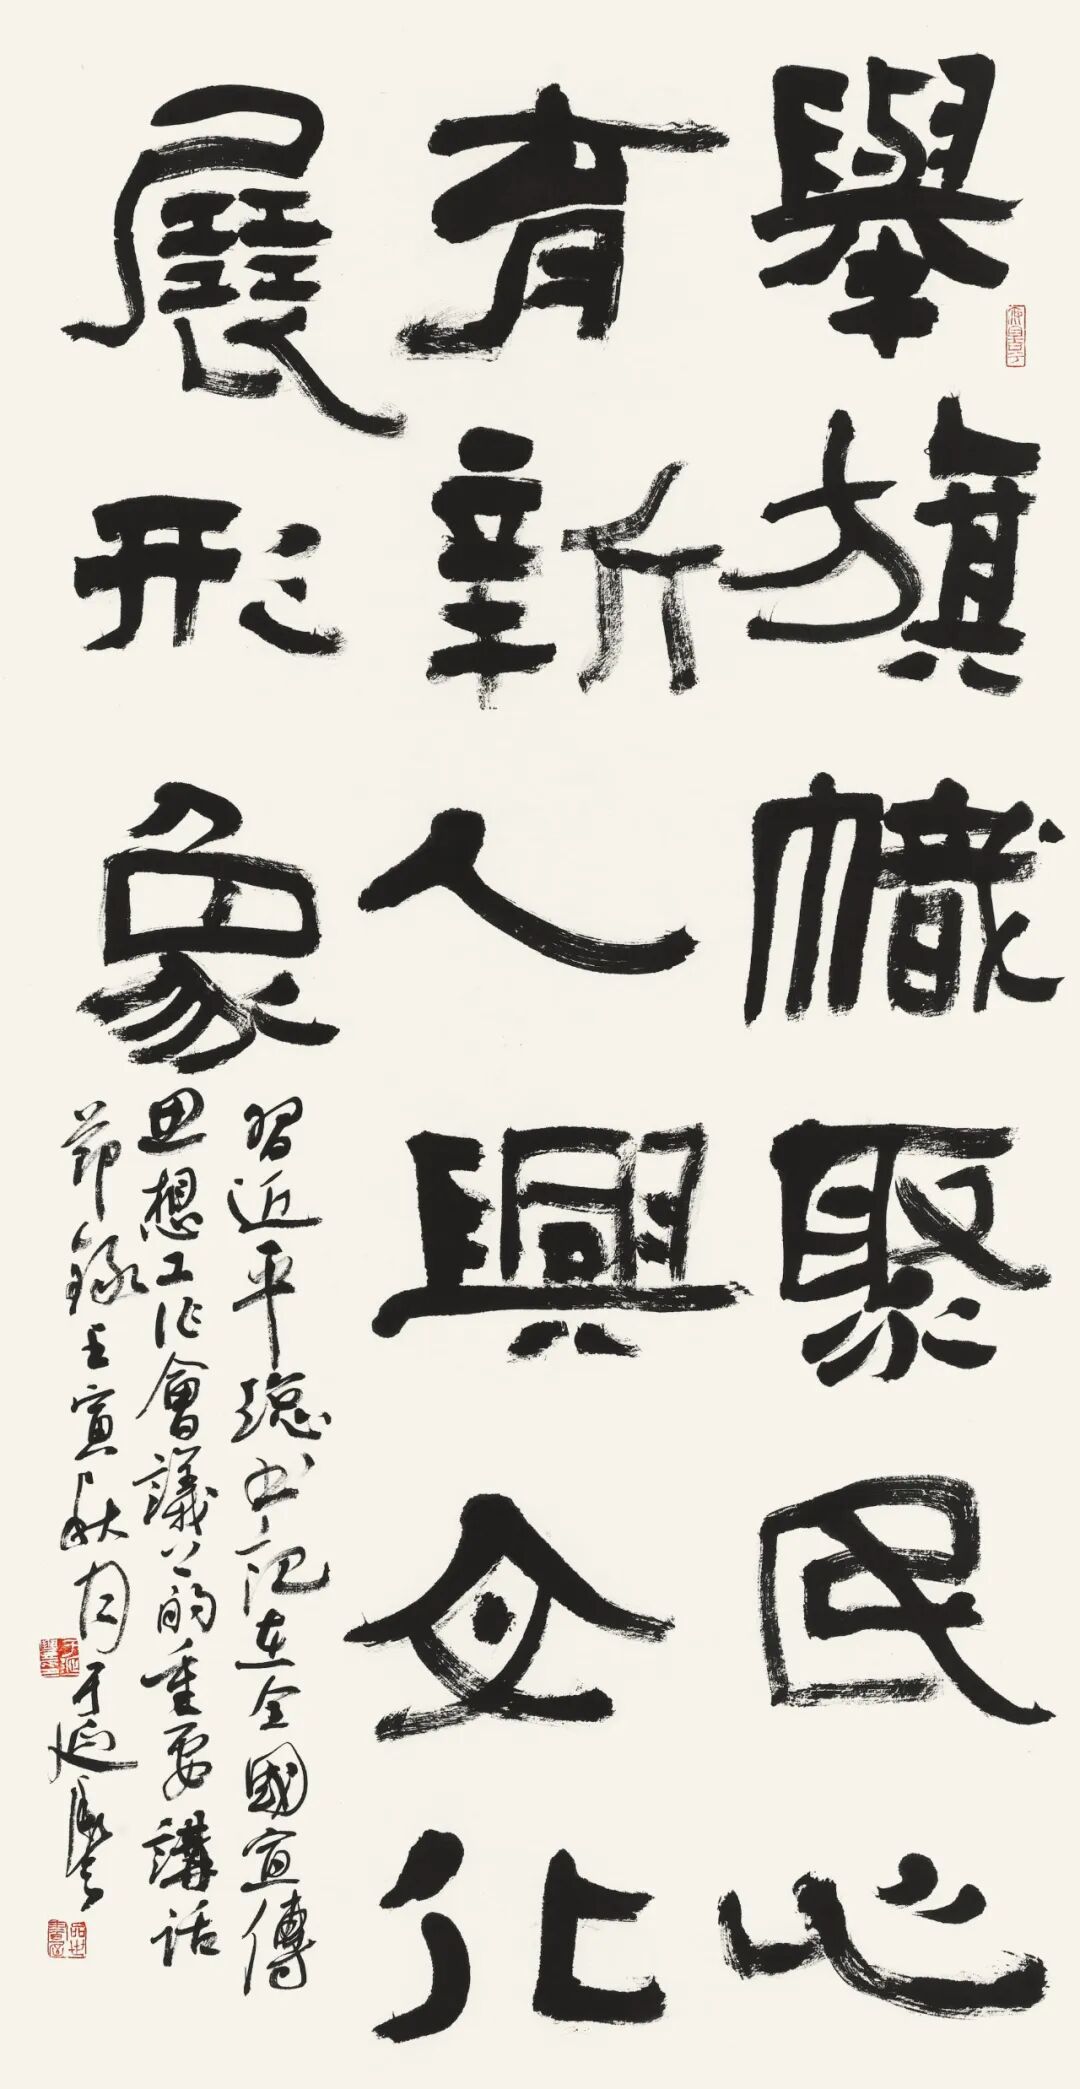 舉旗幟聚民心
育新人興文化
展形象
習近平總書記在全國宣傳
思想工作會議上的重要講話
節錄壬寅秋月于延